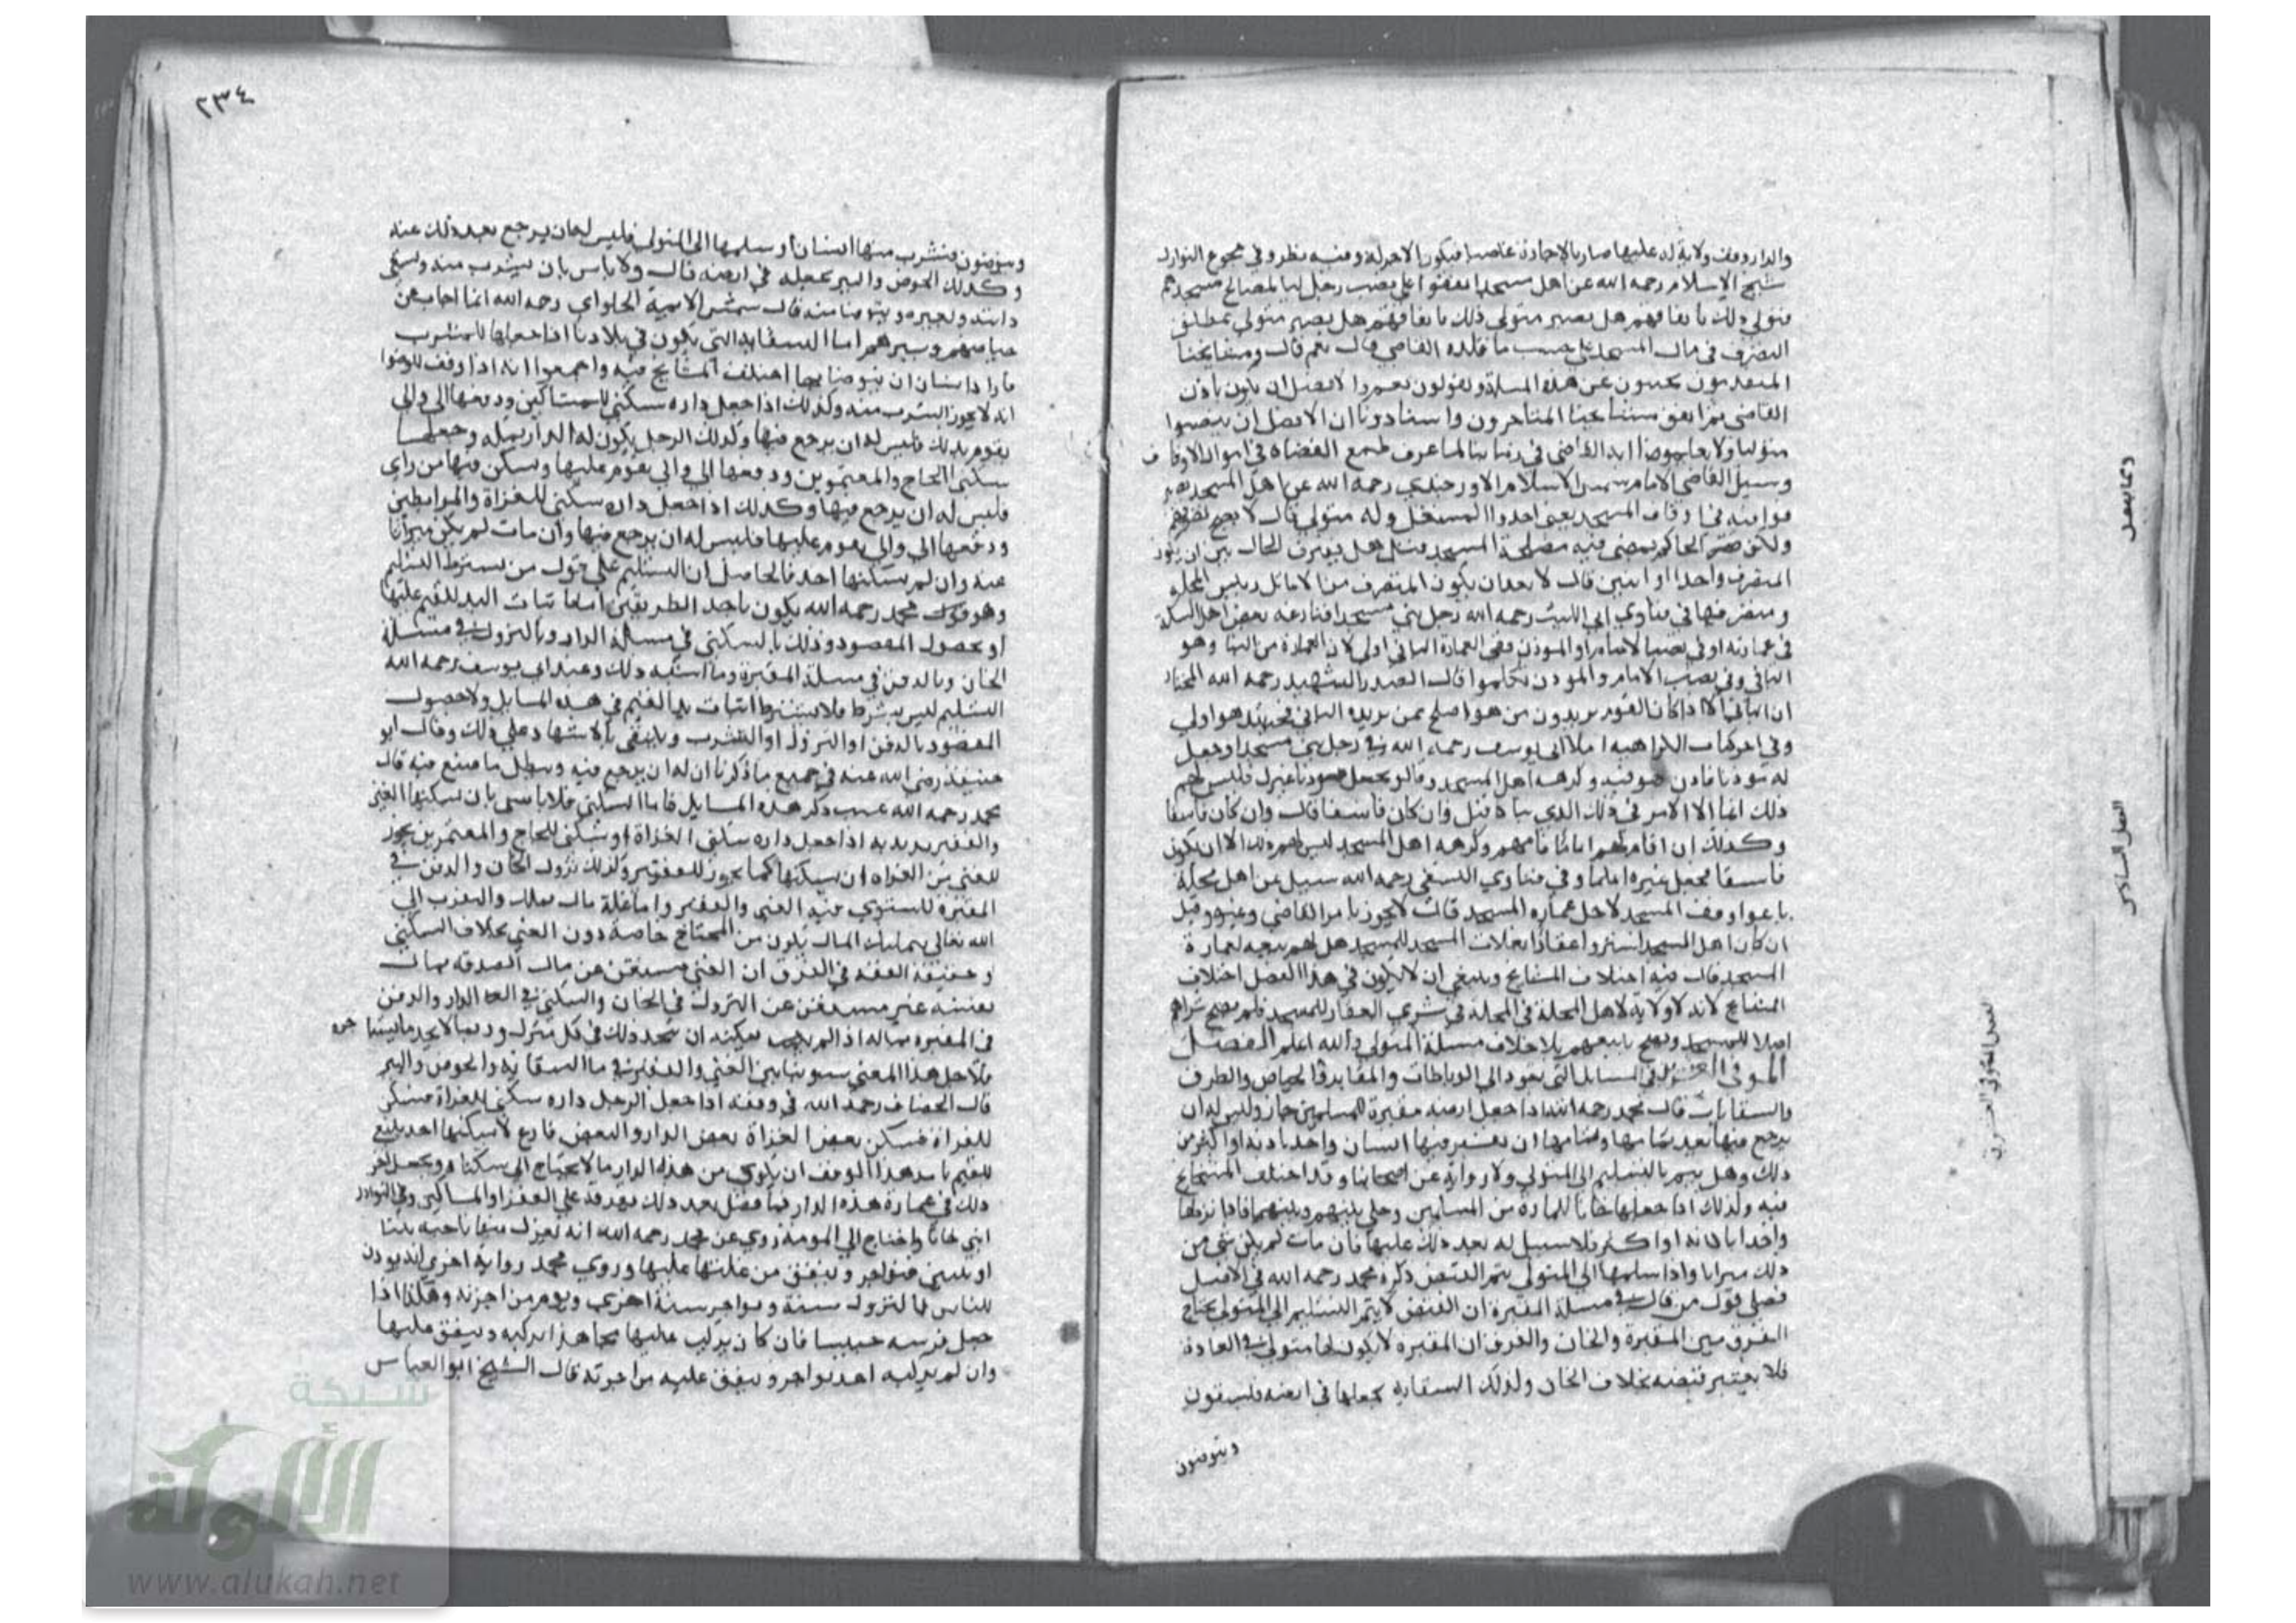 والدار وقف ولاية له عليها صار بالإجارة غاصبا فيكون الاجر له وفيه نظر وفي مجموع النوازل
شيخ الاسلام رحمه الله عن اهل مسجد اتفقوا على نصب رجل لمصالح مسجدهم
فتولى ذلك باتفاقهم هل يصير متولي ذلك باتفاقهم هل يصير متولي بمطلق
التصرف في مال المسجد على حسب ما قلده القاضي قال نعم قال ومشايخنا
المتقدمون يجيبون عن هذه المسئلة ويقولون نعم والافضل ان يكون باذن
القاضي ثم اتفق مشايخنا المتاخرون واستاذونا ان الافضل ان ينصبوا
متوليا ولا يعلموا به القاضي في زماننا لما عرف طمع القضاة في اموال الاوقاف
وسيل القاضي الامام شمس الاسلام الاورجندي رحمه الله عن اهل المسجد
في اوقاف المسجد يعني اجروا المستغل وله متولي قال لا يصح تصرفهم
ولكن الحاكم يمضي فيه مصلحة المسجد قيل هل يفترق الحال بين ان يكون
المتصرف واحدا او اثنين قال لا بعد ان يكون المتصرف من الاماثل رئيس المحلة
ومتصرفها في فتاوي ابي الليث رحمه الله رجل بنى مسجدا فنازعه بعض اهل السكة
في عمارته او في نصب الامام او الموذن ففي العمارة الباني اولى لان العمارة من البنا وهو
الباني وفي نصب الامام والموذن تكلموا قال الصدر الشهيد رحمه الله المختار
ان الباني الا اذا كان القوم يريدون من هو اصلح ممن يريده الباني فحينئذ هو اولى
وفي اخر كتاب الكراهية املا ابي يوسف رحمه الله في رجل بنى مسجدا وجعل
له موذنا فاذن فيه وكرهه اهل المسجد وقالوا نجعل موذنا غيرك فليس لهم
ذلك انما الامر في ذلك الذي بناه قيل وان كان فاسقا قال وان كان فاسقا
وكذلك ان اقام لهم اماما فامهم وكرهه اهل المسجد ليس لهم ذلك الا ان يكون
فاسقا فيجعل غيره اماما وفي فتاوي النسفي رحمه الله سيل عن اهل محلة
باعوا وقف المسجد لاجل عمارة المسجد قال لا يجوز بامر القاضي وغيره وقيل
ان كان اهل المسجد اشتروا عقارا بغلات المسجد للمسجد هل لهم بيعه لعمارة
المسجد قال فيه اختلاف المشايخ وينبغي ان لا يكون في هذا الفصل اختلاف
المشايخ لانه لا ولاية لاهل المحلة في المحلة في شرى العقار للمسجد فلم يصح شراهم
اصلا للمسجد ويصح بايعهم بلا خلاف مسئلة المتولي والله اعلم الفصل
الموفي العشرين في المسايل التي تعود الى الرباطات والمقابر والحياض والطرق
والسقايات قال محمد رحمه الله اذا جعل ارضه مقبرة للمسلمين جاز وليس له ان
يرجع فيها بعد تمامها وتمامها ان يقبر فيها انسان واحد باذنه او اكثر من
ذلك وهل يتم بالتسليم الى المتولي ولا رواية عن اصحابنا وقد اختلف المشايخ
فيه وكذلك اذا جعلها خانا للمارة من المسلمين وخلى بينهم وبينها فاذا نزلها
واحد باذنه او اكثر فلا سبيل له بعد ذلك عليها فان مات لم يكن شي من
ذلك ميراثا واذا سلمها الى المتولي يتم القبض ذكره محمد رحمه الله في الاصل
فعلى قول من قال في مسئلة المقبرة ان القبض لا يتم بالتسليم الى المتولي يحتاج
الفرق بين المقبرة والخان والفرق ان المقبرة لا يكون لها متولي في العادة
فلا يعتبر قبضه بخلاف الخان وكذلك السقاية يجعلها في ارضه فليسقون
ويتوضون
وكما يفعل
الفصل السادس
الفصل الموفي العشرين
٢٣٤
ويتوضون فيشرب منها انسان او سلمها الى المتولي فليس له ان يرجع بعد ذلك عنه
وكذلك الحوض والبير يجعله في ارضه قال ولا باس بان يشرب منه ويسقى
دابته وبعيره ويتوضا منه قال شمس الايمة الحلواي رحمه الله انما اجاب عن
حياضهم وبيرهم اما السقاية التي تكون في بلادنا اذا جعلها للشرب
فاراد انسان ان يتوضا بها اختلف المشايخ فيه واجمعوا انه اذا وقف للوضوا
انه لا يجوز الشرب منه وكذلك اذا جعل داره سكنى للمساكين ودفعها الى والي
يقوم بذلك فليس له ان يرجع فيها وكذلك الرجل يكون له الدار بمكة وجعلها
سكنى الحاج والمعتمرين ودفعها الى والي يقوم عليها ويسكن فيها من راى
فليس له ان يرجع فيها وكذلك اذا جعل داره سكنى للغزاة والمرابطين
ودفعها الى والي يقوم عليها فليس له ان يرجع فيها وان مات لم يكن ميراثا
عنه وان لم يسكنها احد فالحاصل ان التسليم على قول من يشترط التسليم
وهو قول محمد رحمه الله يكون باحد الطريقين اما باثبات اليد للقيم عليها
او بحصول المقصود وذلك بالسكنى في مسئلة الدار وبالنزول في مسئلة
الخان وبالدفن في مسئلة المقبرة وما اشبه ذلك وعند ابي يوسف رحمه الله
التسليم ليس بشرط فلا يشترط اثبات يد القيم في هذه المسايل ولا حصول
المقصود بالدفن او النزول او الشرب ويكتفى بالاشهاد على ذلك وقال ابو
حنيفة رضي الله عنه في جميع ما ذكرنا ان له ان يرجع فيه ويبطل ما صنع فيه قال
محمد رحمه الله عقيب ذكر هذه المسايل فاما السكنى فلا باس بان يسكنها الغني
والفقير يريد به اذا جعل داره سكنى الغزاة او سكنى للحاج والمعتمرين يجوز
للغني من الغزاة ان يسكنها كما يجوز للفقير وكذلك نزول الخان والدفن في
المقبرة يستوي فيه الغني والفقير واما غلة مال تملك والتقرب الى
الله تعالى بتمليك المال يكون من المحتاج خاصة دون الغني بخلاف السكنى
وحقيقة الفقه في الفرق ان الغني مستغن عن مال الصدقة بماله
بعينه غير مستغن عن النزول في الخان والسكنى في الدار والدفن
في المقبرة بماله اذ لا يمكنه ان يتخذ ذلك في كل منزل وربما لا يجد ما يستاجره
فلاجل هذا المعنى سوينا بين الغني والفقير في السقاية والحوض والبير
قال الخصاف رحمه الله في وقفه اذا جعل الرجل داره سكنى للغزاة فسكن
للغزاة فسكن بعض الغزاة بعض الدار والبعض فارغ لا يسكنها احد ينبغي
للقيم بامر هذا الوقف ان يكري من هذه الدار ما لا يحتاج الى سكناه ويجعل اجر
ذلك في عمارة هذه الدار فما فضل بعد ذلك يفرقه على الفقرا والمساكين وفي النوادر
ابنى خانا واحتاج الى المومة روي عن محمد رحمه الله انه يعزل منها ناحية بيتا
او بيتين فتواجر وينفق من غلتها عليها وروي محمد رواية اخرى انه يوذن
للناس بالنزول سنة ويواجر سنة اخرى ويرم من اجرته وهكذا اذا
جعل فرسه حبيسا فان كان يركب عليها مجاهد يركبه وينفق عليها
وان لم يركبه احد يواجر وينفق عليه من اجرته قال الشيخ ابو العباس
شبكة
الألوكة
www.alukah.net